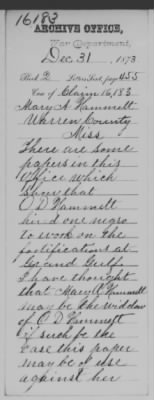 16183
ARCHIVE OFFICE,
War Department,
Dec 31, 1873
Book 2 Letter Sent, page 455
Case of Claim 16,183
Mary A Hammett
Warren County
Miss
There are some
papers in this
Office which
show that
O D Hammett
hired one negro
to work on the
fortifications at
Grand Gulf.
I have thought
that Mary A Hammett
may be the widdow
of O D Hammett
if such be the
case this paper
may be of use
against her